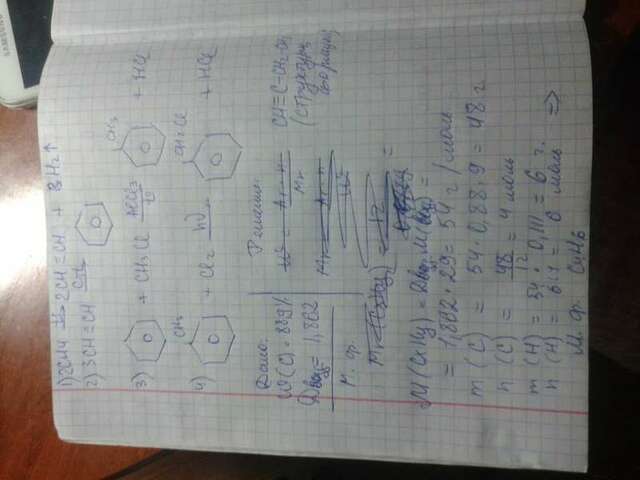 1) 2CH4 → 2CH≡CH + 3H2↑
2) 3CH≡CH
3) + CH3Cl AlCl3 CH3 + HCl
4) CH3 + Cl2 hν CH2Cl + HCl
Дано:
W(C) = 88,9%
Dвозд = 1,862
М. ф.
Решение:
CH≡C-CH2-CH3
(структурн. формула)
M(CxHy) = Dвозд·M(возд) =
= 1,862 · 29 = 54 г/моль
m(C) = 54 · 0,889 = 48 г
n(C) = 48/12 = 4 моль
m(H) = 54 · 0,111 = 6 г.
n(H) = 6:1 = 6 моль =>
М. ф. C4H6
SAMSUNG